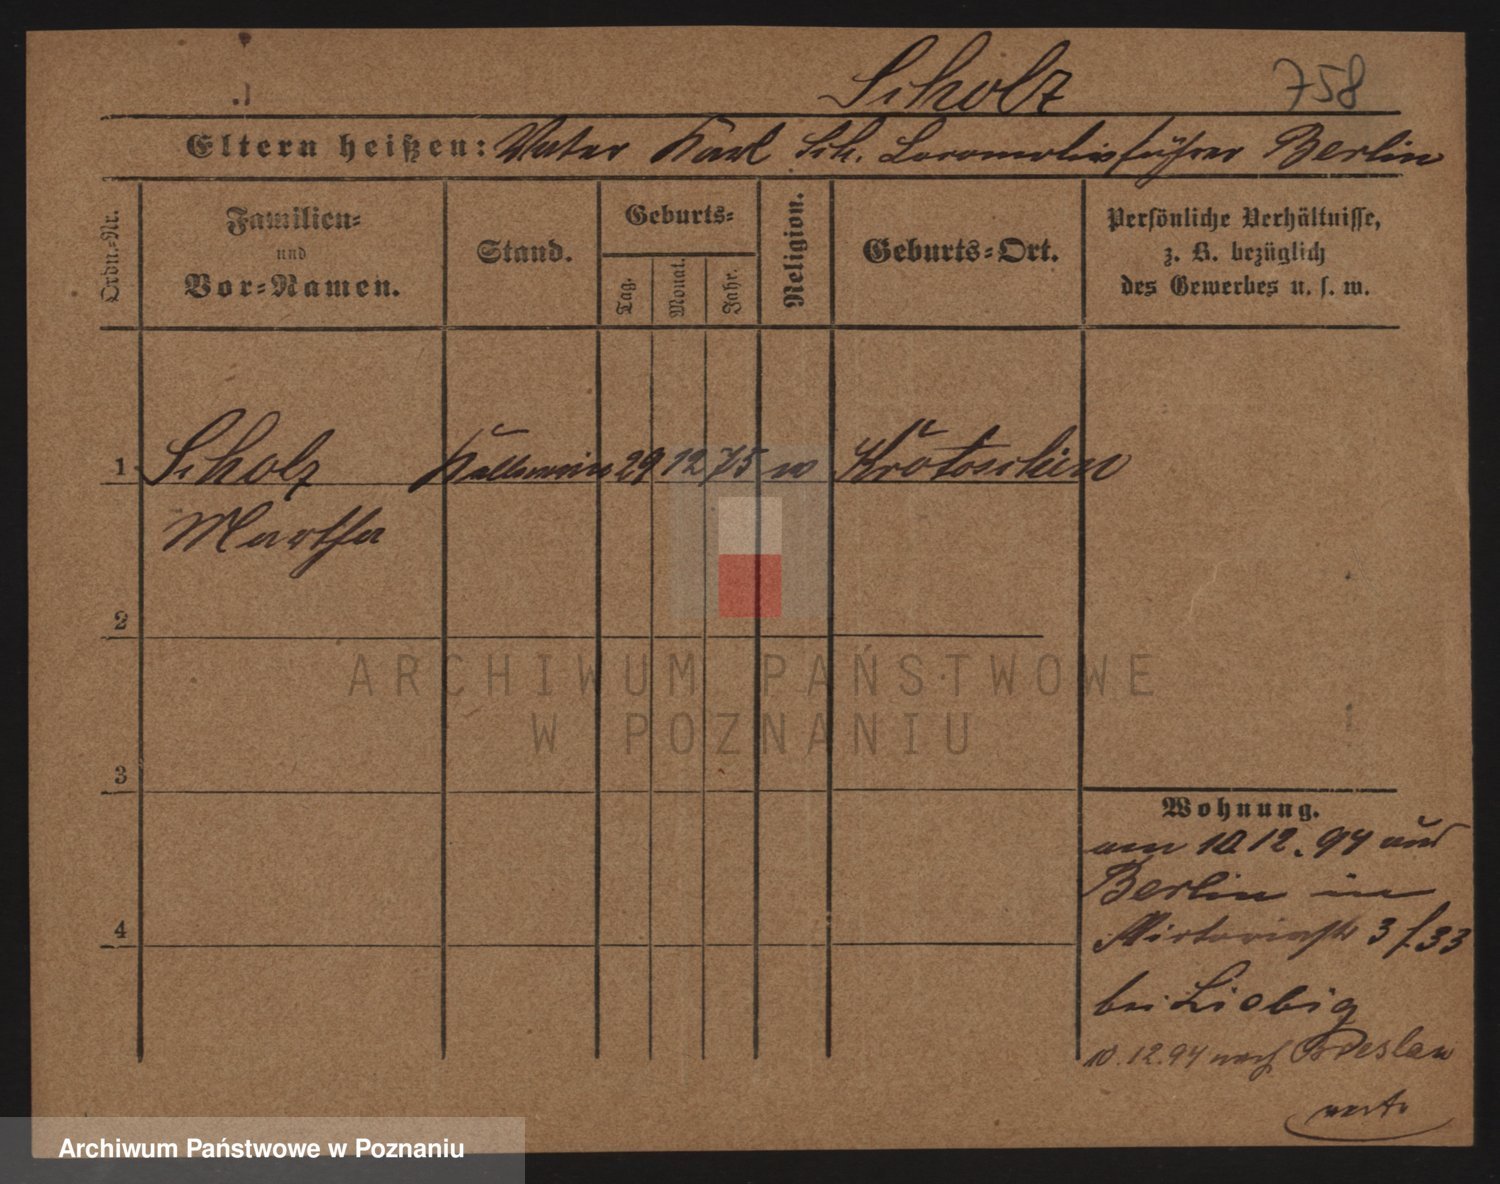 Scholz 758
Eltern heißen: Vater Karl Sch. Locomotivführer Berlin
Ordn.-Nr.
Familien-
und
Vor-Namen.
Stand.
Geburts-
Tag.
Monat.
Jahr.
Religion.
Geburts-Ort.
Persönliche Verhältnisse,
z. B. bezüglich
des Gewerbes u. s. w.
1 Scholz Kellnerin 29 12 75 Krotoschin
Martha
2
3
4
Wohnung.
am 10.12.94 aus
Berlin in
Victoriastr 3
bei Liebig
10.12.94 nach Breslau
ARCHIWUM PAŃSTWOWE
W POZNANIU
Archiwum Państwowe w Poznaniu